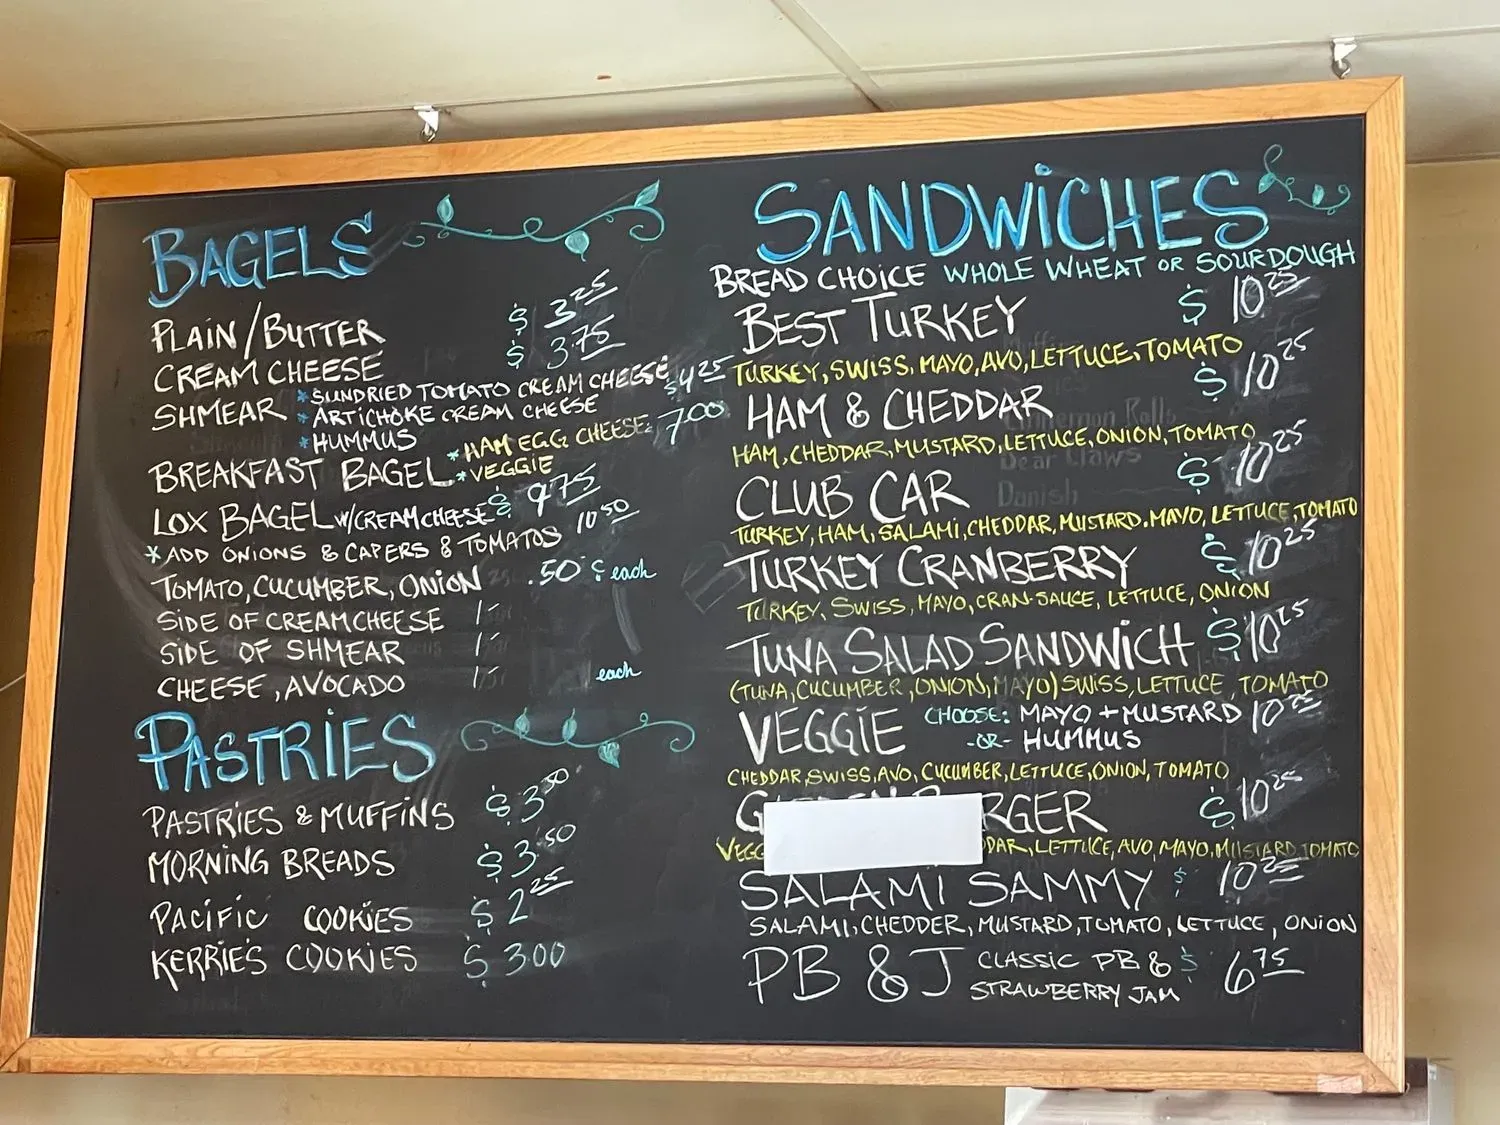 BAGELS
PLAIN/BUTTER $ 3.25
CREAM CHEESE $ 3.75
SHMEAR *SUNDRIED TOMATO CREAM CHEESE $4.25
*ARTICHOKE CREAM CHEESE
*HUMMUS
BREAKFAST BAGEL *HAM EGG CHEESE 7.00
*VEGGIE
LOX BAGEL W/CREAM CHEESE $ 9.75
*ADD ONIONS & CAPERS & TOMATOS 10.50
TOMATO, CUCUMBER, ONION .50 ¢ each
SIDE OF CREAM CHEESE 1-
SIDE OF SHMEAR 1-
CHEESE, AVOCADO 1- each
PASTRIES
PASTRIES & MUFFINS $ 3.50
MORNING BREADS $ 3.50
PACIFIC COOKIES $ 2.25
KERRIE'S COOKIES $ 3.00
SANDWICHES
BREAD CHOICE WHOLE WHEAT OR SOURDOUGH
BEST TURKEY $ 10.25
TURKEY, SWISS, MAYO, AVO, LETTUCE, TOMATO
HAM & CHEDDAR $ 10.25
HAM, CHEDDAR, MUSTARD, LETTUCE, ONION, TOMATO
CLUB CAR $ 10.25
TURKEY, HAM, SALAMI, CHEDDAR, MUSTARD. MAYO, LETTUCE, TOMATO
TURKEY CRANBERRY $ 10.25
TURKEY, SWISS, MAYO, CRAN-SAUCE, LETTUCE, ONION
TUNA SALAD SANDWICH $10.25
(TUNA, CUCUMBER, ONION, MAYO) SWISS, LETTUCE, TOMATO
VEGGIE CHOOSE: MAYO + MUSTARD 10.25
-OR- HUMMUS
CHEDDAR, SWISS, AVO, CUCUMBER, LETTUCE, ONION, TOMATO
$ 10.25
LETTUCE, AVO, MAYO, MUSTARD, TOMATO
SALAMI SAMMY $ 10.25
SALAMI, CHEDDER, MUSTARD, TOMATO, LETTUCE, ONION
PB & J CLASSIC PB & $ 6.75
STRAWBERRY JAM